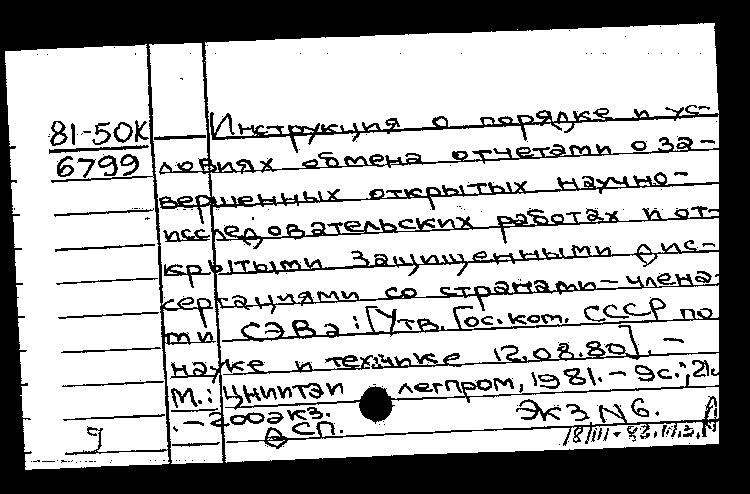 81-50К
6799
Инструкция о порядке и ус-
ловиях обмена отчетами о за-
вершенных открытых научно-
исследовательских работах и от-
крытыми защищенными дис-
сертациями со странами-члена-
ми СЭВа: [Утв. Гос.ком. СССР по
науке и технике 12.08.80]. -
М.: ЦНИИТЭИ легпром, 1981. - 9с.; 21с
. - 200экз.
ДСП. Экз N6.